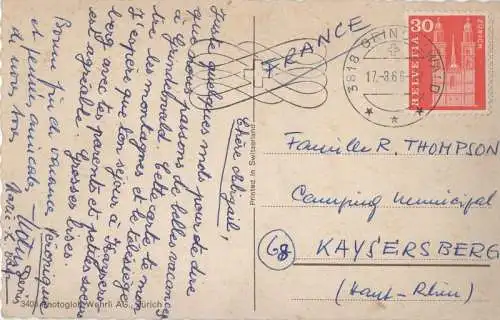 Chère Abigail,
Juste quelques mots pour te dire
que nous passons de belles vacances
à Grindelwald. Cette carte te mon-
tre les montagnes et le télésiège.
J'espère que ton séjour à Kaysers-
berg avec tes parents et petites soeurs
est agréable. Grosses bises.
Véronique
Bonne fin de vacances
et pensées amicales
à vous tous
Denis
Printed in Switzerland
Photoglob-Wehrli AG, Zürich
FRANCE
3818 GRINDELWALD
17.-8.6
30
ZÜRICH
HELVETIA
Famille R. THOMPSON
Camping Municipal
68 KAYSERSBERG
(Haut-Rhin)